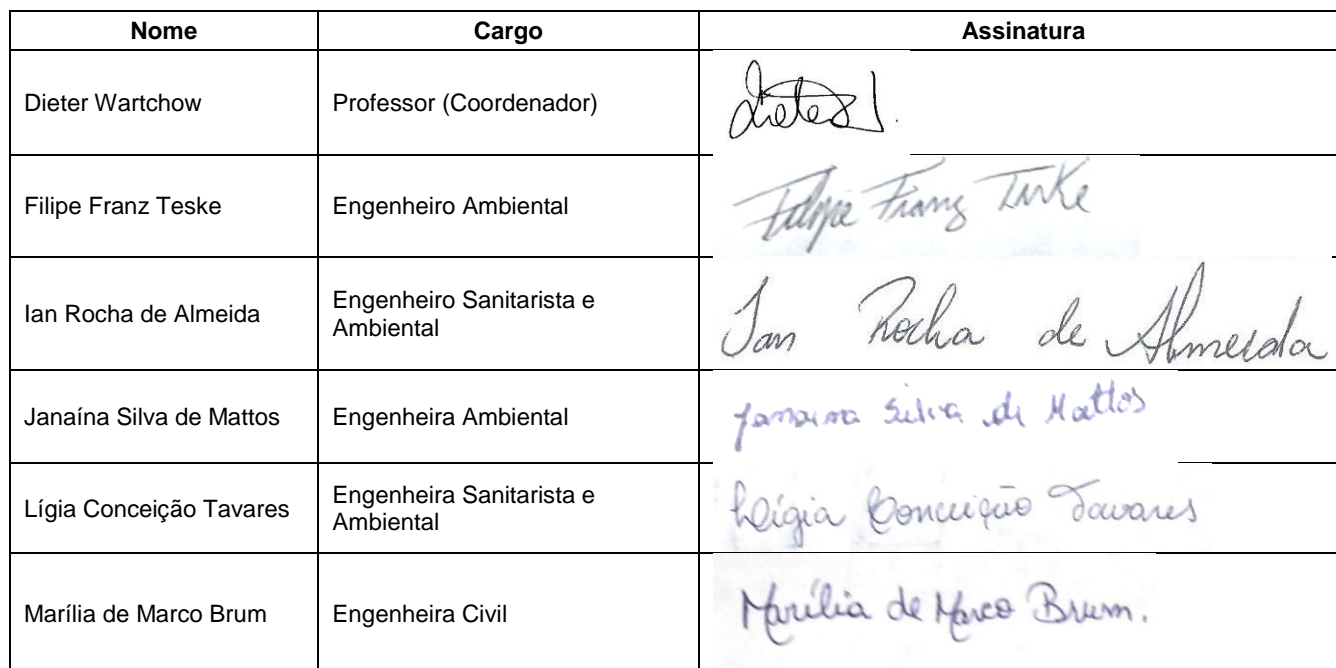 Nome Cargo Assinatura
Dieter Wartchow Professor (Coordenador) Dieter
Filipe Franz Teske Engenheiro Ambiental Filipe Franz Teske
Ian Rocha de Almeida Engenheiro Sanitarista e
Ambiental Ian Rocha de Almeida
Janaína Silva de Mattos Engenheira Ambiental Janaina Silva de Mattos
Lígia Conceição Tavares Engenheira Sanitarista e
Ambiental Lígia Conceição Tavares
Marília de Marco Brum Engenheira Civil Marília de Marco Brum.